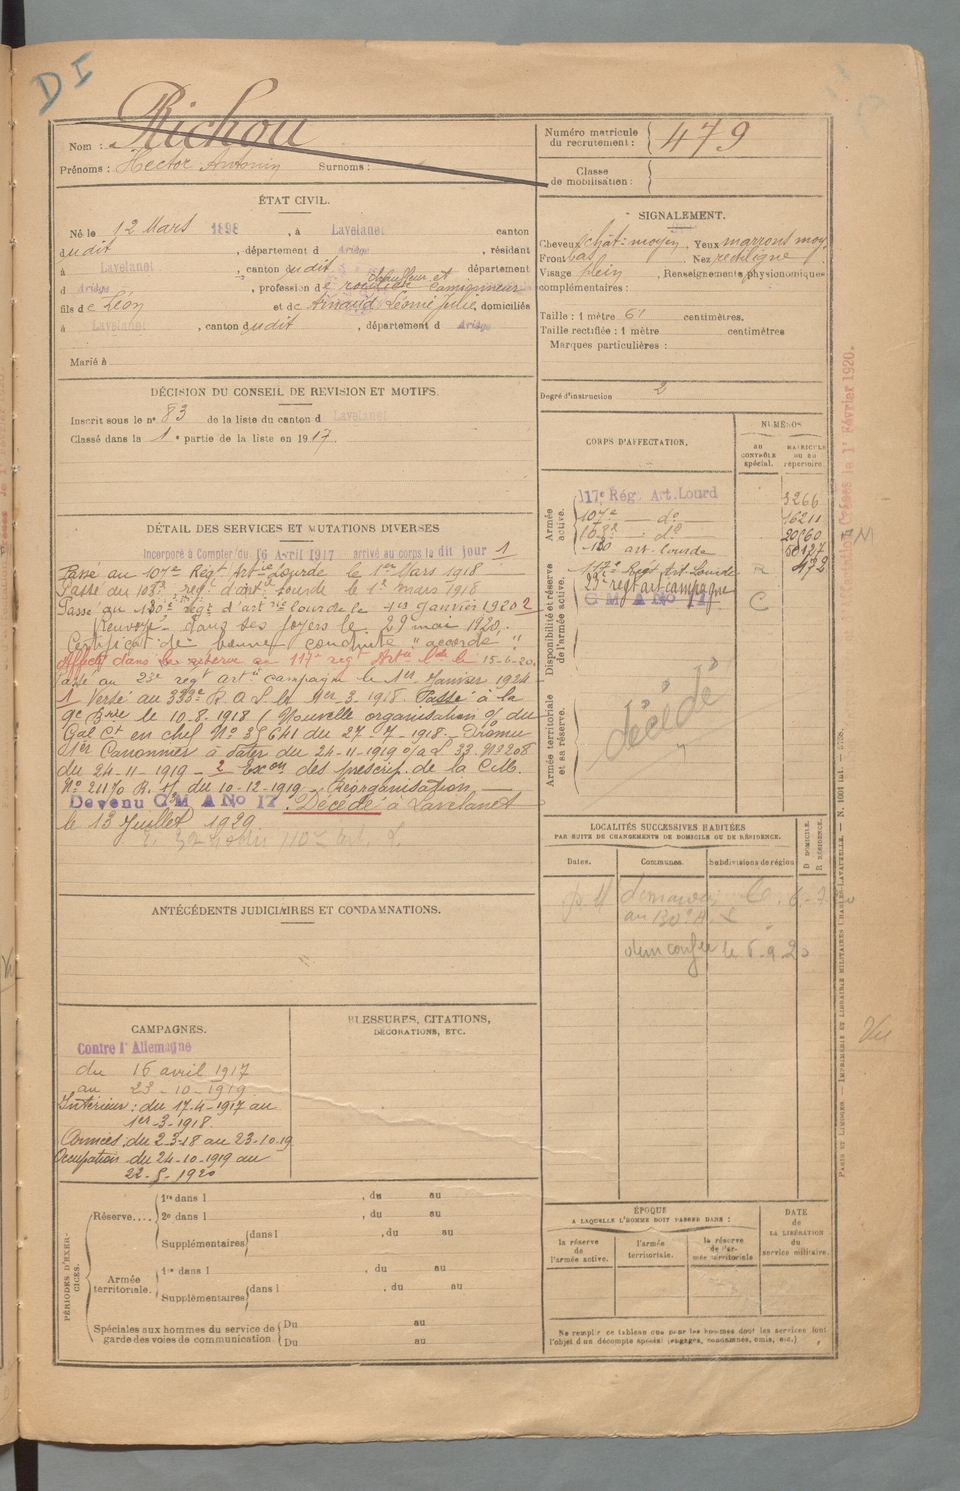 DI
Nom : Richou
Prénoms : Hector Antonin Surnoms :
Numéro matricule du recrutement : 479
Classe de mobilisation :
ÉTAT CIVIL.
Né le 12 Mars 1898, à Lavelanet canton
dudit, département d Ariège, résidant
à Lavelanet, canton dudit département
chauffeur et
d Ariège, profession de routier camionneur
fils de Léon et de Arnaud Léonie Julie, domiciliés
à Lavelanet, canton dudit, département d Ariège
Marié à
SIGNALEMENT.
Cheveux chât: moyen, Yeux marrons moy.
Front bas Nez rectiligne
Visage plein, Renseignements physionomiques
complémentaires :
Taille : 1 mètre 61 centimètres.
Taille rectifiée : 1 mètre centimètres
Marques particulières :
Degré d'instruction 2
DÉCISION DU CONSEIL DE REVISION ET MOTIFS.
Inscrit sous le n° 83 de la liste du canton d Lavelanet
Classé dans la 1e partie de la liste en 1917.
DÉTAIL DES SERVICES ET MUTATIONS DIVERSES
Incorporé à Compter du 16 Avril 1917 arrivé au corps le dit jour 1
Passé au 107e Régt Artie Lourde le 1er Mars 1918
Passé au 108e régt d'artie Lourde le 1er mars 1918
Passé au 130e régt d'artie lourde le 1er Janvier 1920 2
Renvoyé dans ses foyers le 29 mai 1920.
Certificat de bonne conduite "accordé"
Affecté dans la réserve au 117e regt Artie Lde le 15-6-20
Passé au 23e regt artie campagne le 1er Janvier 1924
1 Versé au 333e R.A.L. le 1er-3-1918. Passé à la
9e Brie le 10-8-1918 (Nouvelle organisation o/ du
Gal Ct en chef No 35641 du 27-7-1918. Promu
1er Canonnier à dater du 24-11-1919 o/ al 33 No 3208
du 24-11-1919 - 2 Exon des prescrip. de la C.M.
No 21170 R. du 10-12-1919 - Réorganisation
Devenu C M A No 17. Décédé à Lavelanet
le 13 Juillet 1929
CORPS D'AFFECTATION.
NUMÉROS
AU CONTRÔLE spécial.
MATRICULE OU AU répertoire.
Armée active.
117e Rég. Art. Lourd 3266
107e — do 16211
108e — do 20960
130 art. lourde
Disponibilité et réserve de l'armée active.
117e Regt Art. Lourde R 472
23e regt art campagne
C M A No 17 C
Armée territoriale et sa réserve.
décédé
LOCALITÉS SUCCESSIVES HABITÉES
PAR SUITE DE CHANGEMENTS DE DOMICILE OU DE RÉSIDENCE.
Dates. Communes. Subdivisions de région
D DOMICILE. R RÉSIDENCE.
ANTÉCÉDENTS JUDICIAIRES ET CONDAMNATIONS.
CAMPAGNES.
Contre l'Allemagne
du 16 avril 1917
au 23-10-1919
Intérieur : du 17-4-1917 au
1er-3-1918.
Armées : du 2-3-18 au 23-10-19
Occupation du 24-10-1919 au
22-5-1920
BLESSURES, CITATIONS,
DÉCORATIONS, ETC.
PÉRIODES D'EXERCICES.
Réserve.... 1re dans l , du au
2e dans l , du au
Supplémentaires dans l , du au
Armée territoriale. 1re dans l , du au
Supplémentaires dans l , du au
Spéciales aux hommes du service de
garde des voies de communication. Du au
Du au
ÉPOQUE
A LAQUELLE L'HOMME DOIT PASSER DANS :
la réserve de l'armée active.
l'armée territoriale.
la réserve de l'armée territoriale
DATE de LA LIBÉRATION du service militaire.
Ne remplir ce tableau que pour les hommes dont les services font
l'objet d'un décompte spécial (engagés, condamnés, omis, etc.)
PARIS ET LIMOGES. — IMPRIMERIE ET LIBRAIRIE MILITAIRES CHARLES-LAVAUZELLE.
Vu